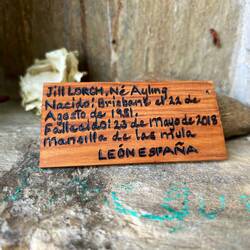 Jill LORCH, Né Ayling
Nacido: Brisbane el 22 de
Agosto de 1951,
Fallecido: 23 de Mayo de 2018
Mansilla de las mula
LEÓN ESPAÑA